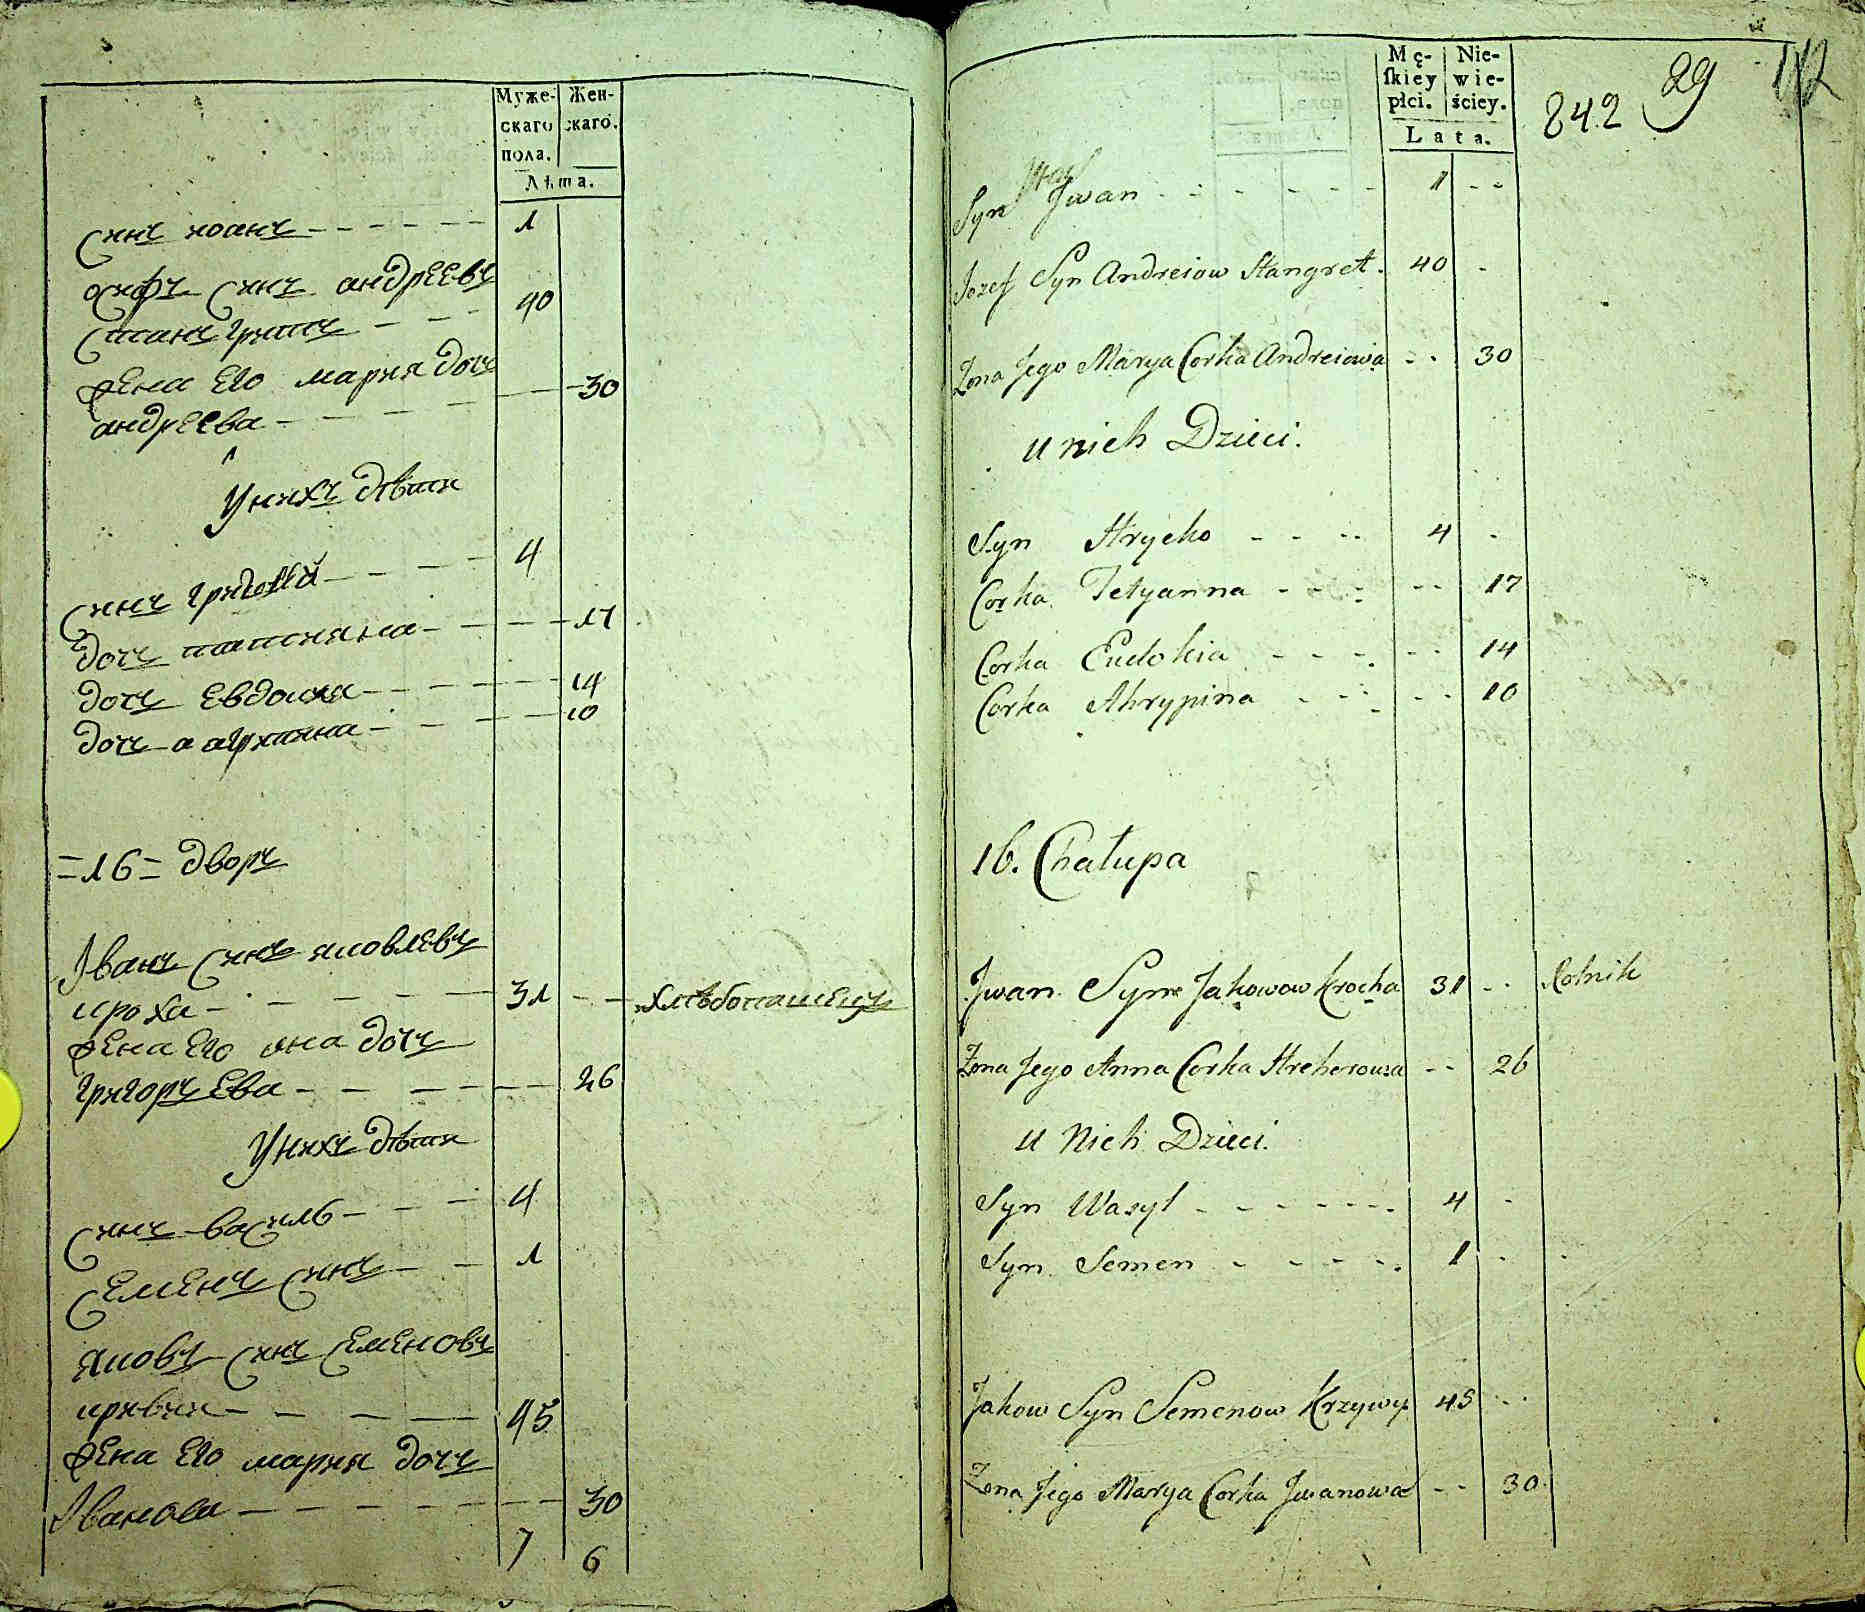 Муже-
скаго
пола.
Жен-
скаго.
Лѣта.
Синъ иоанъ - - - - - - 1
осифъ Синъ андреевъ
Стангритъ - - - 40
жена Его мария дочъ
андреева - - - - 30
Унихъ дѣти
Синъ григорій - - - - 4
дочъ татияна - - - - 17
дочъ Евдокия - - - - 14
дочъ - а агрипина - - - - 10
=16= дворъ
Іванъ Синъ яковлевъ
кроха - - - - - 31 - - хлѣбопашецъ
жена Его анна дочъ
григорьева - - - - - 26
Унихъ дѣти
Синъ василь - - - 4
Семенъ Синъ - - 1
яковъ Синъ Семеновъ
кривии - - - - 45
жена Его мария дочъ
Іванова - - - - - - 30
7 6
Mę-
skiey
płci.
Nie-
wie-
ściey.
Lata.
842
29
112
Syn Jwan - - - - - - 1 - -
Jozef Syn Andreiow Stangret . 40 -
Zona Jego Marya Corka Andreiowa - - 30
u nich Dzieci.
Syn Hrycko - - - - 4 -
Corka Tetyanna - - - - - - 17
Corka Eudokia - - - - - - 14
Corka Ahrypina - - - - - - 10
16. Chałupa
Jwan Syn Jakowow Krocha 31 - - Rolnik
Zona Jego Anna Corka Hrehorowa - - 26
u Nich Dzieci.
Syn Wasyl - - - - - - 4 -
Syn Semen - - - - - 1 -
Jakow Syn Semenow Krzywy 45 - -
Zona Jego Marya Corka Jwanowa - - 30